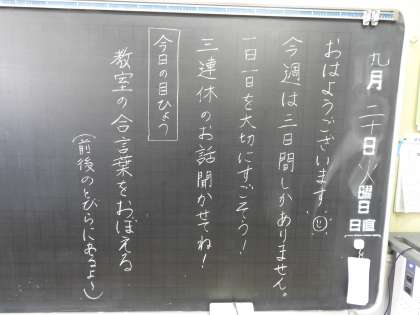 九月二十日火曜日
日直
おはようございます。
今週は三日間しかありません。
一日一日を大切にすごそう！
三連休のお話聞かせてね！
今日の目ひょう
教室の合言葉をおぼえる
（前後のとびらにあるよ〜）